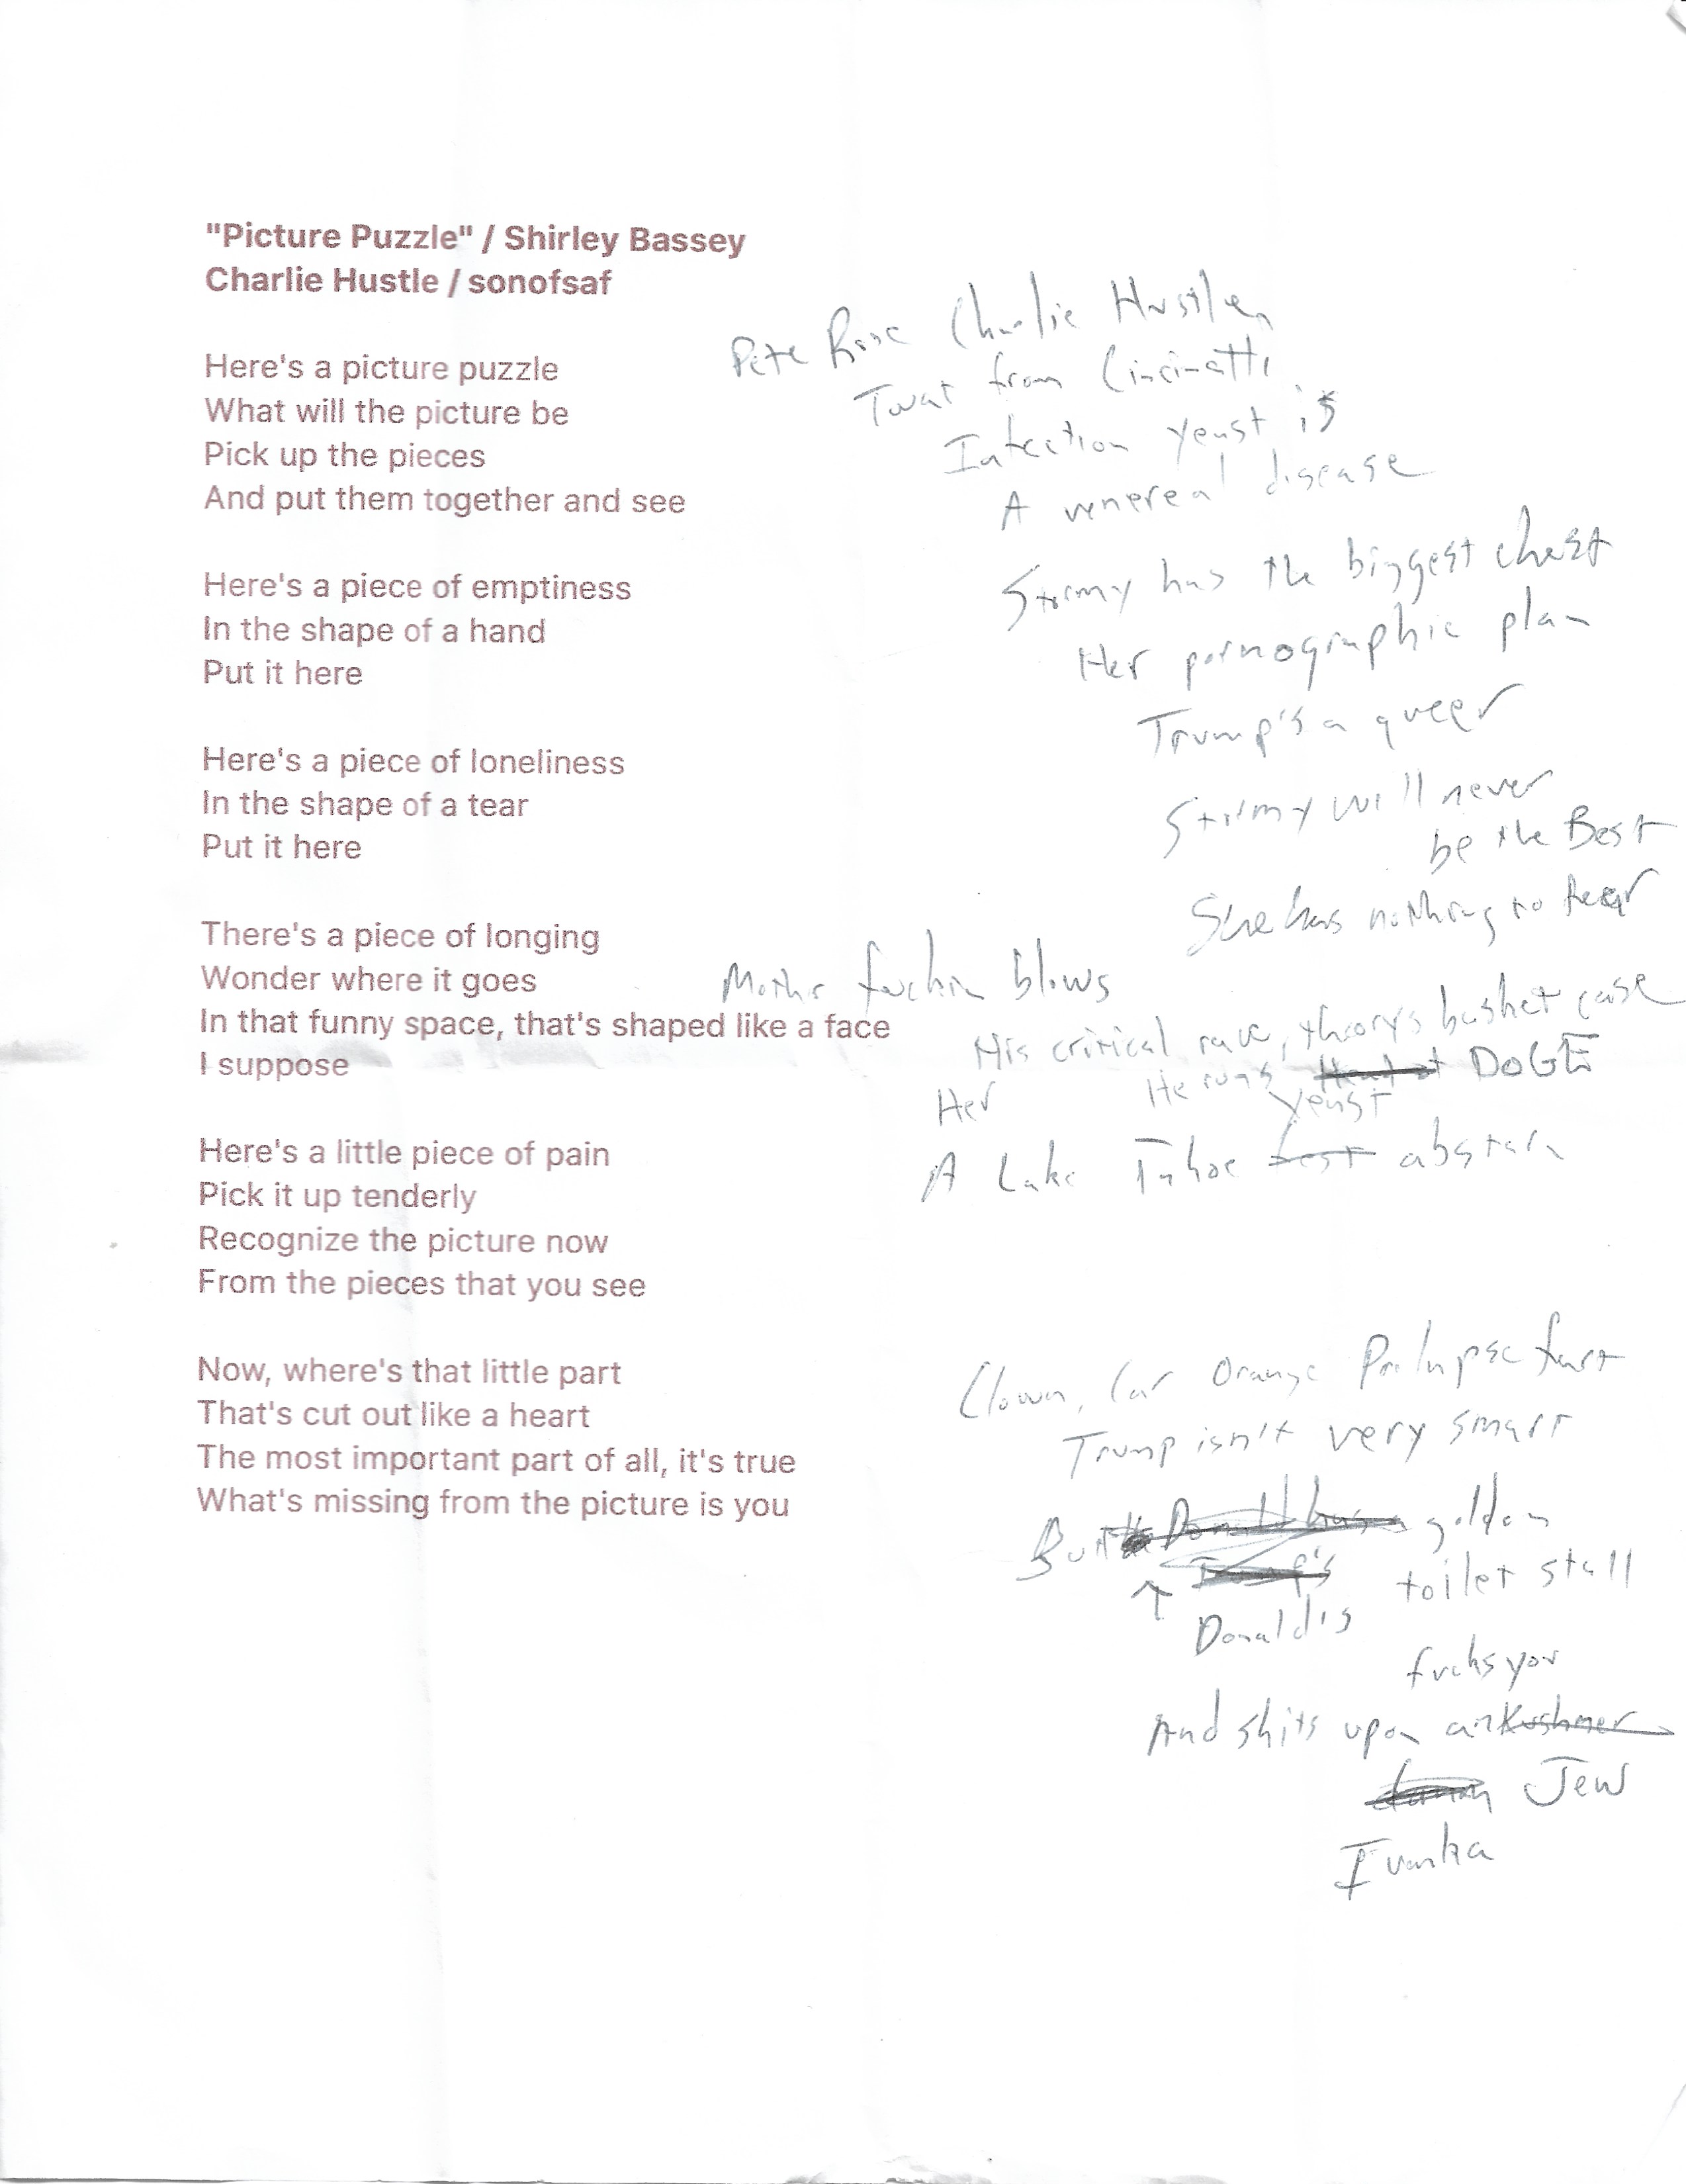 "Picture Puzzle" / Shirley Bassey
Charlie Hustle / sonofsaf
Here's a picture puzzle
What will the picture be
Pick up the pieces
And put them together and see
Here's a piece of emptiness
In the shape of a hand
Put it here
Here's a piece of loneliness
In the shape of a tear
Put it here
There's a piece of longing
Wonder where it goes
In that funny space, that's shaped like a face
I suppose
Here's a little piece of pain
Pick it up tenderly
Recognize the picture now
From the pieces that you see
Now, where's that little part
That's cut out like a heart
The most important part of all, it's true
What's missing from the picture is you
Pete Rose Charlie Hustle
Twat from Cincinatti
Infection yeast is
A venereal disease
Stormy has the biggest chest
Her pornographic plan
Trump's a queer
Stormy will never
be the Best
She has nothing to fear
Mother fuckin blows
His critical race, theory's basket case
He runs DOGE
Her yeast
A Lake Tahoe test abstain
Clown, Car Orange Prolapse fart
Trump isn't very smart
But Donald has golden
Trump's toilet stall
Donald's
fucks you
And shits upon Kushner
Jew
Ivanka